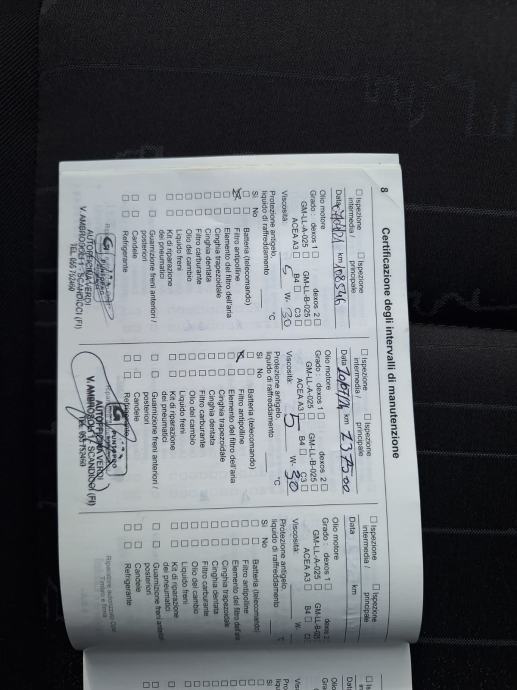 8 Certificazione degli intervalli di manutenzione
□ Ispezione intermedia / □ Ispezione principale
Data km 108546
Olio motore
Grado: dexos 1 □ dexos 2 □
GM-LL-A-025 □ GM-LL-B-025 □
ACEA A3 □ B4 □ C3 □
Viscosità: 5 W- 30
Protezione antigelo,
liquido di raffreddamento °C
Sì No
□ □ Batteria (telecomando)
□ Filtro antipolline
□ □ Elemento del filtro dell'aria
□ □ Cinghia trapezoidale
□ □ Cinghia dentata
□ □ Filtro carburante
□ □ Olio del cambio
□ □ Liquido freni
□ □ Kit di riparazione
dei pneumatici
□ □ Guarnizione freni anteriori /
posteriori
□ □ Candele
□ □ Refrigerante
PUNTO PRO
AUTOFFICINA VERDI
V. AMBROSOLI 1 - SCANDICCI (FI)
□ Ispezione intermedia / □ Ispezione principale
Data km
Olio motore
Grado: dexos 1 □ dexos 2 □
GM-LL-A-025 □ GM-LL-B-025 □
ACEA A3 □ B4 □ C3 □
Viscosità: 5 W- 30
Protezione antigelo,
liquido di raffreddamento °C
Sì No
□ Batteria (telecomando)
□ Filtro antipolline
□ □ Elemento del filtro dell'aria
□ □ Cinghia trapezoidale
□ □ Cinghia dentata
□ □ Filtro carburante
□ □ Olio del cambio
□ □ Liquido freni
□ □ Kit di riparazione
dei pneumatici
□ □ Guarnizione freni anteriori /
posteriori
□ □ Candele
□ □ Refrigerante
PUNTO PRO
AUTOFFICINA VERDI
V. AMBROSOLI 1 - SCANDICCI (FI)
□ Ispezione intermedia / □ Ispezione principale
Data km
Olio motore
Grado: dexos 1 □ dexos 2
GM-LL-A-025 □ GM-LL-B-025
ACEA A3 □ B4 □
Viscosità: W-
Protezione antigelo,
liquido di raffreddamento
Sì No
□ □ Batteria (telecomando)
□ □ Filtro antipolline
□ □ Elemento del filtro dell'aria
□ □ Cinghia trapezoidale
□ □ Cinghia dentata
□ □ Filtro carburante
□ □ Olio del cambio
□ □ Liquido freni
□ □ Kit di riparazione
dei pneumatici
□ □ Guarnizione freni anteriori
posteriori
□ □ Candele
□ □ Refrigerante
Riparatore autorizzato Opel
Timbro e firma